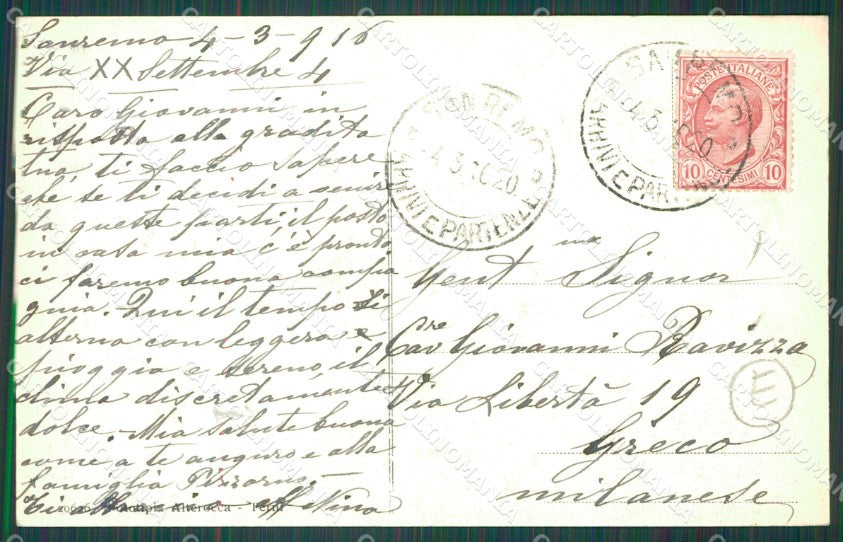 Sanremo 4-3-916
Via XX Settembre 4
Caro Giovanni in
risposta alla gradita
tua ti faccio sapere
che se ti decidi a venire
da queste parti il posto
in casa mia c'è pronto
ci faremo buona compa
gnia. Qui il tempo si
alterna con leggera
pioggia e sereno, il
clima discretamente
dolce. Mia salute buona
come a te auguro e alla
famiglia Pizzorno.
Ti
Nino
Fototipia Alterocca - Terni
SAN REMO
4.3.16 20
ARRIVI E PARTENZE
SAN REMO
4.3.16 20
ARRIVI E PARTENZE
POSTE ITALIANE
10 CENTESIMI 10
Gent mo Signor
Cav re Giovanni Ravizza
Via Libertà 19
Greco
milanese
CARTOLINOMANIA